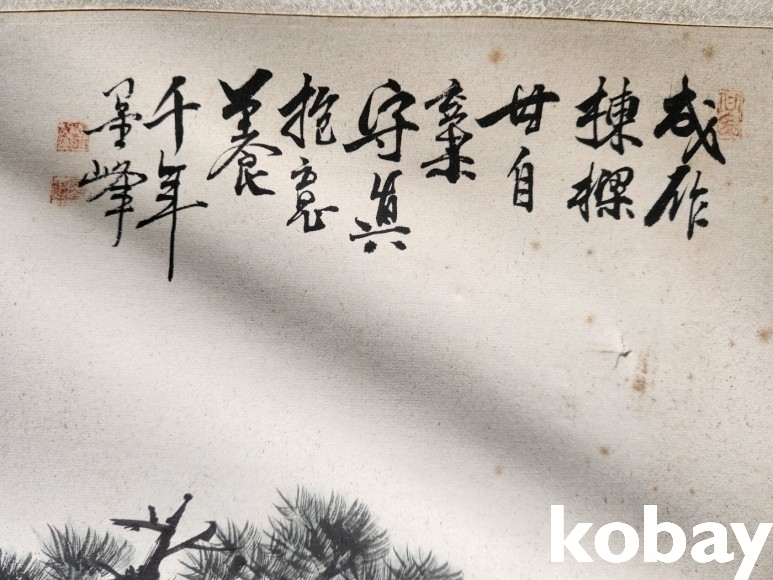 成作
棟樑
甘自
棄
守眞
抱
養
千年
墨峰
kobay